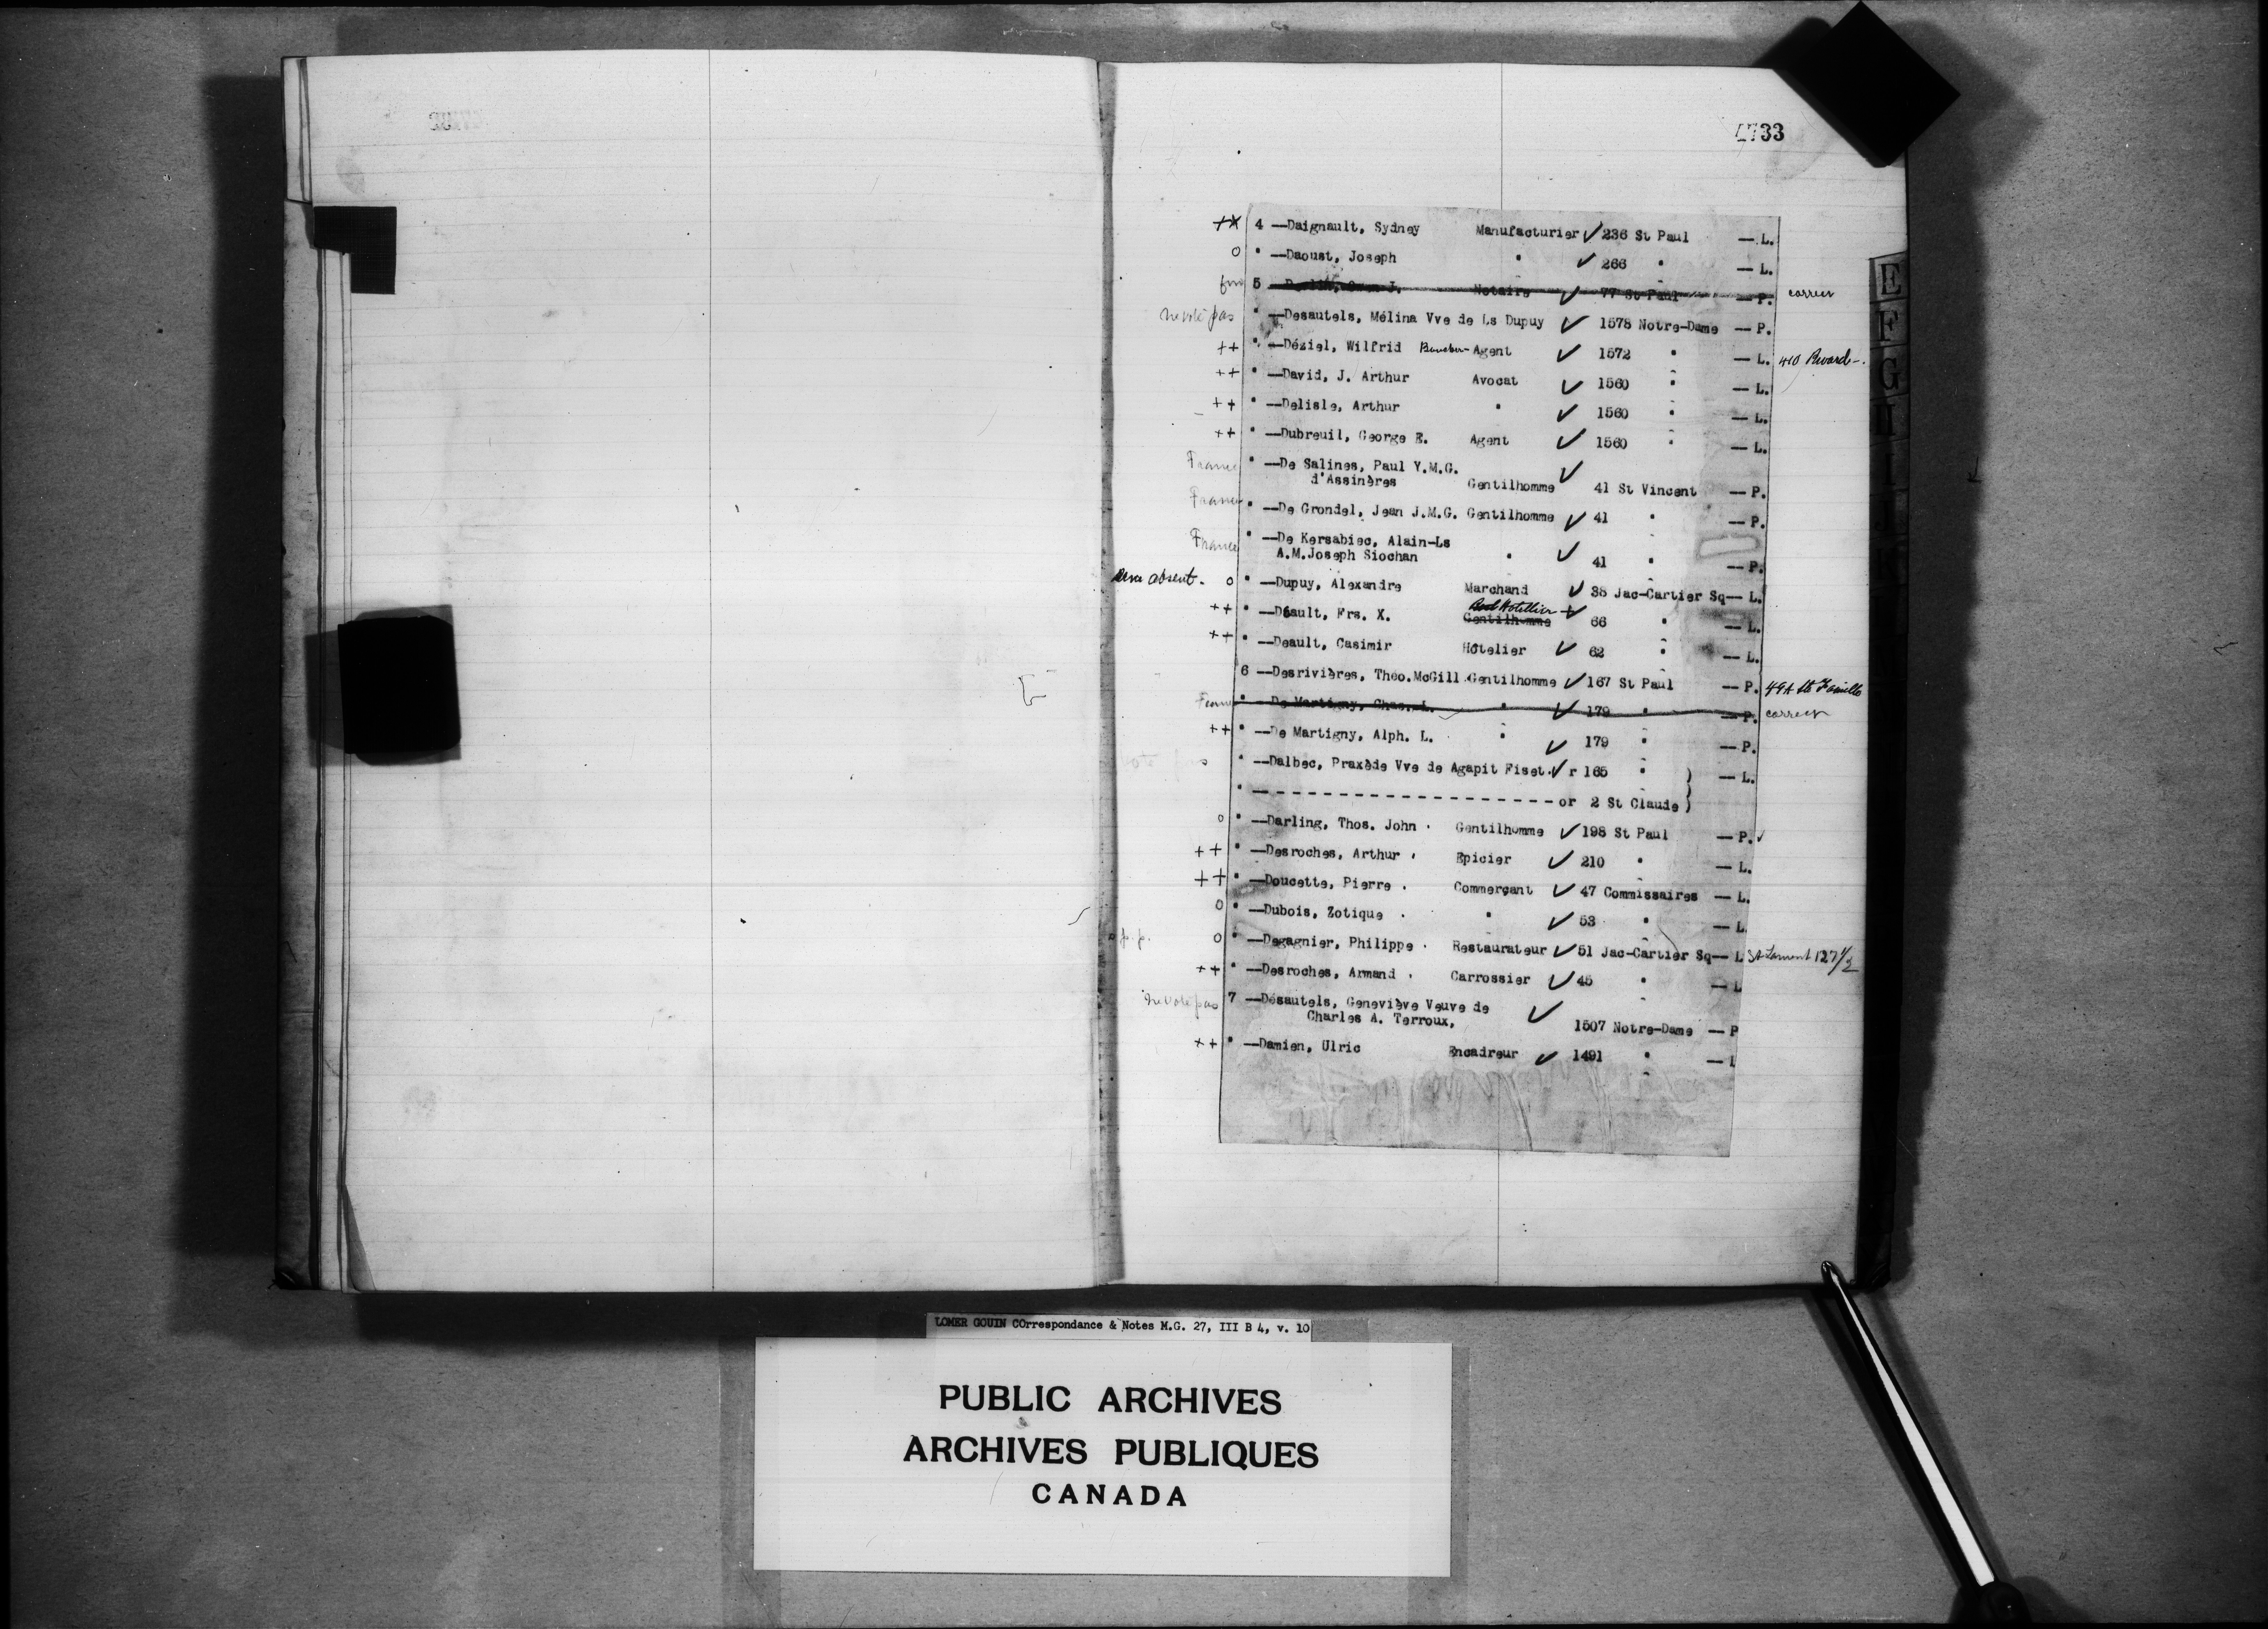 4733
+* 4 —Daignault, Sydney Manufacturier ✓ 236 St Paul — L.
o " —Daoust, Joseph " ✓ 266 " — L.
5 — J. Notaire ✓ 77 St Paul — P. correct
ne vote pas " —Desautels, Mélina Vve de Ls Dupuy ✓ 1578 Notre-Dame — P.
++ " —Déziel, Wilfrid Agent ✓ 1572 " — L. 410 Rivard
++ " —David, J. Arthur Avocat ✓ 1560 " — L.
++ " —Delisle, Arthur " ✓ 1560 " — L.
++ " —Dubreuil, George E. Agent ✓ 1560 " — L.
France " —De Salines, Paul Y.M.G. ✓
d'Assinères Gentilhomme 41 St Vincent — P.
France " —De Grondel, Jean J.M.G. Gentilhomme ✓ 41 " — P.
France " —De Kersabiec, Alain-Ls
A.M.Joseph Siochan " ✓ 41 " — P.
absent. o " —Dupuy, Alexandre Marchand ✓ 38 Jac-Cartier Sq— L.
Hotellier
++ " —Déault, Frs. X. Gentilhomme ✓ 66 " — L.
++ " —Deault, Casimir Hôtelier ✓ 62 " — L.
6 —Desrivières, Theo.McGill Gentilhomme ✓ 167 St Paul — P. 49A Ste Famille
" —De Martigny, Chas. L. " ✓ 179 " — P. correct
++ " —De Martigny, Alph. L. " ✓ 179 " — P.
" —Dalbec, Praxède Vve de Agapit Fiset ✓ r 165 " ) — L.
" — - - - - - - - - - - - - - - - - - - or 2 St Claude )
o " —Darling, Thos. John Gentilhomme ✓ 198 St Paul — P. ✓
++ " —Desroches, Arthur Epicier ✓ 210 " — L.
++ " —Doucette, Pierre Commerçant ✓ 47 Commissaires — L.
o " —Dubois, Zotique " ✓ 53 " — L
p.p. o " —Degagnier, Philippe Restaurateur ✓ 51 Jac-Cartier Sq— L St Laurent 127 1/2
++ " —Desroches, Armand Carrossier ✓ 45 " — L
ne vote pas 7 —Désautels, Geneviève Veuve de ✓
Charles A. Terroux, 1507 Notre-Dame — P
++ " —Damien, Ulric Encadreur ✓ 1491 " — L
E
F
G
H
I
J
K
LOMER GOUIN COrrespondance & Notes M.G. 27, III B 4, v. 10
PUBLIC ARCHIVES
ARCHIVES PUBLIQUES
CANADA